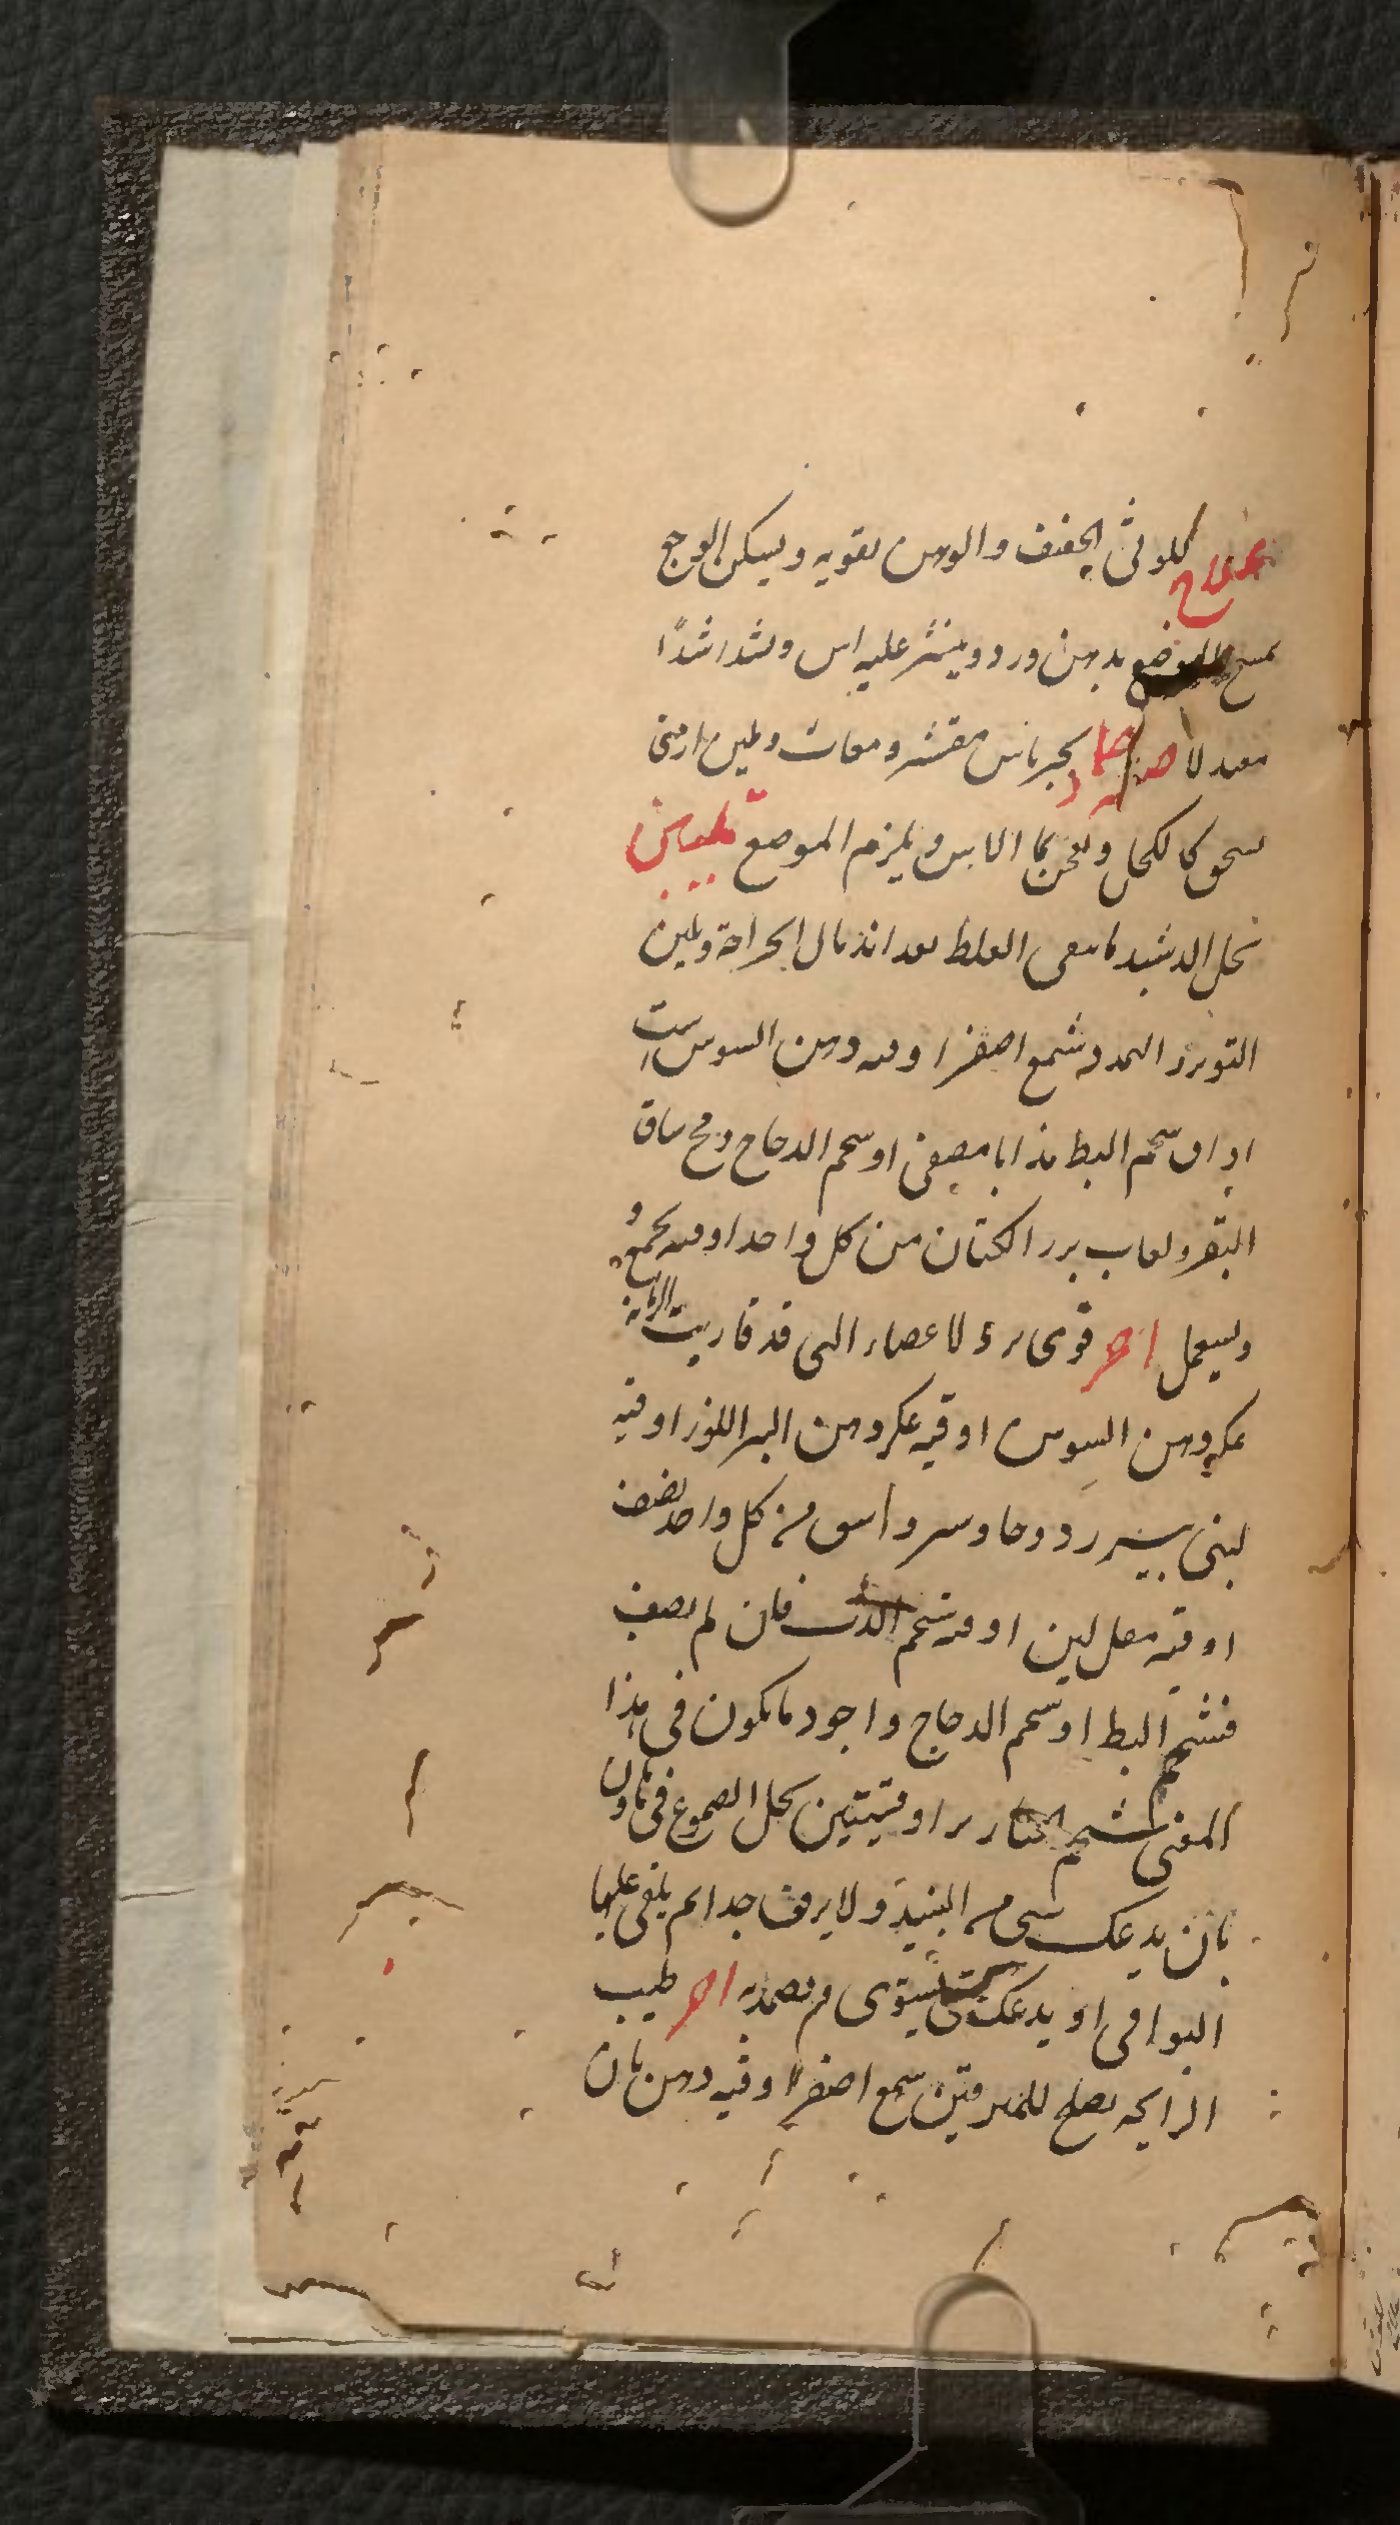 علاج للوثى الخفيف والوهن تقويه ويسكن الوجع
يمسح الموضع بدهن ورد وينثر عليه اس ويشد شدًا
معتدلا ضماد لجبر ماش مقشر ومغاث وطين ارمنى
يسحق كالكحل ويعجن بما الاس ويلزم الموضع مليّن
يحل الدشبد ما يبقى الغلظ بعد اندمال الجراحة ويلين
شمع اصفر اوقيه دهن السوس ست
اواق شحم البط مذابا مصفى او شحم الدجاج ومخ ساق
البقر ولعاب بزر الكتان من كل واحد اوقيه يجمع و
ويستعمل اخر قوى للاعضاء التى قد قاربت
عكر دهن السوس اوقيه عكر دهن البزر اللوز اوقيه
لبنى من كل واحد نصف
اوقيه مقل لين اوقيه شحم الدب فان لم يصب
فشحم البط او شحم الدجاج واجود ما يكون فى هذا
المعنى شحم اوقيتين يحل الصموغ فى هاون
بان يدعك بشى من النبيذ ولا يرقق جدا ثم يلقى عليها
البواقى او يدعك حتى يستوى ثم يضمد به اخر طيب
الرايحه يصلح للمترفين شمع اصفر اوقيه دهن بان